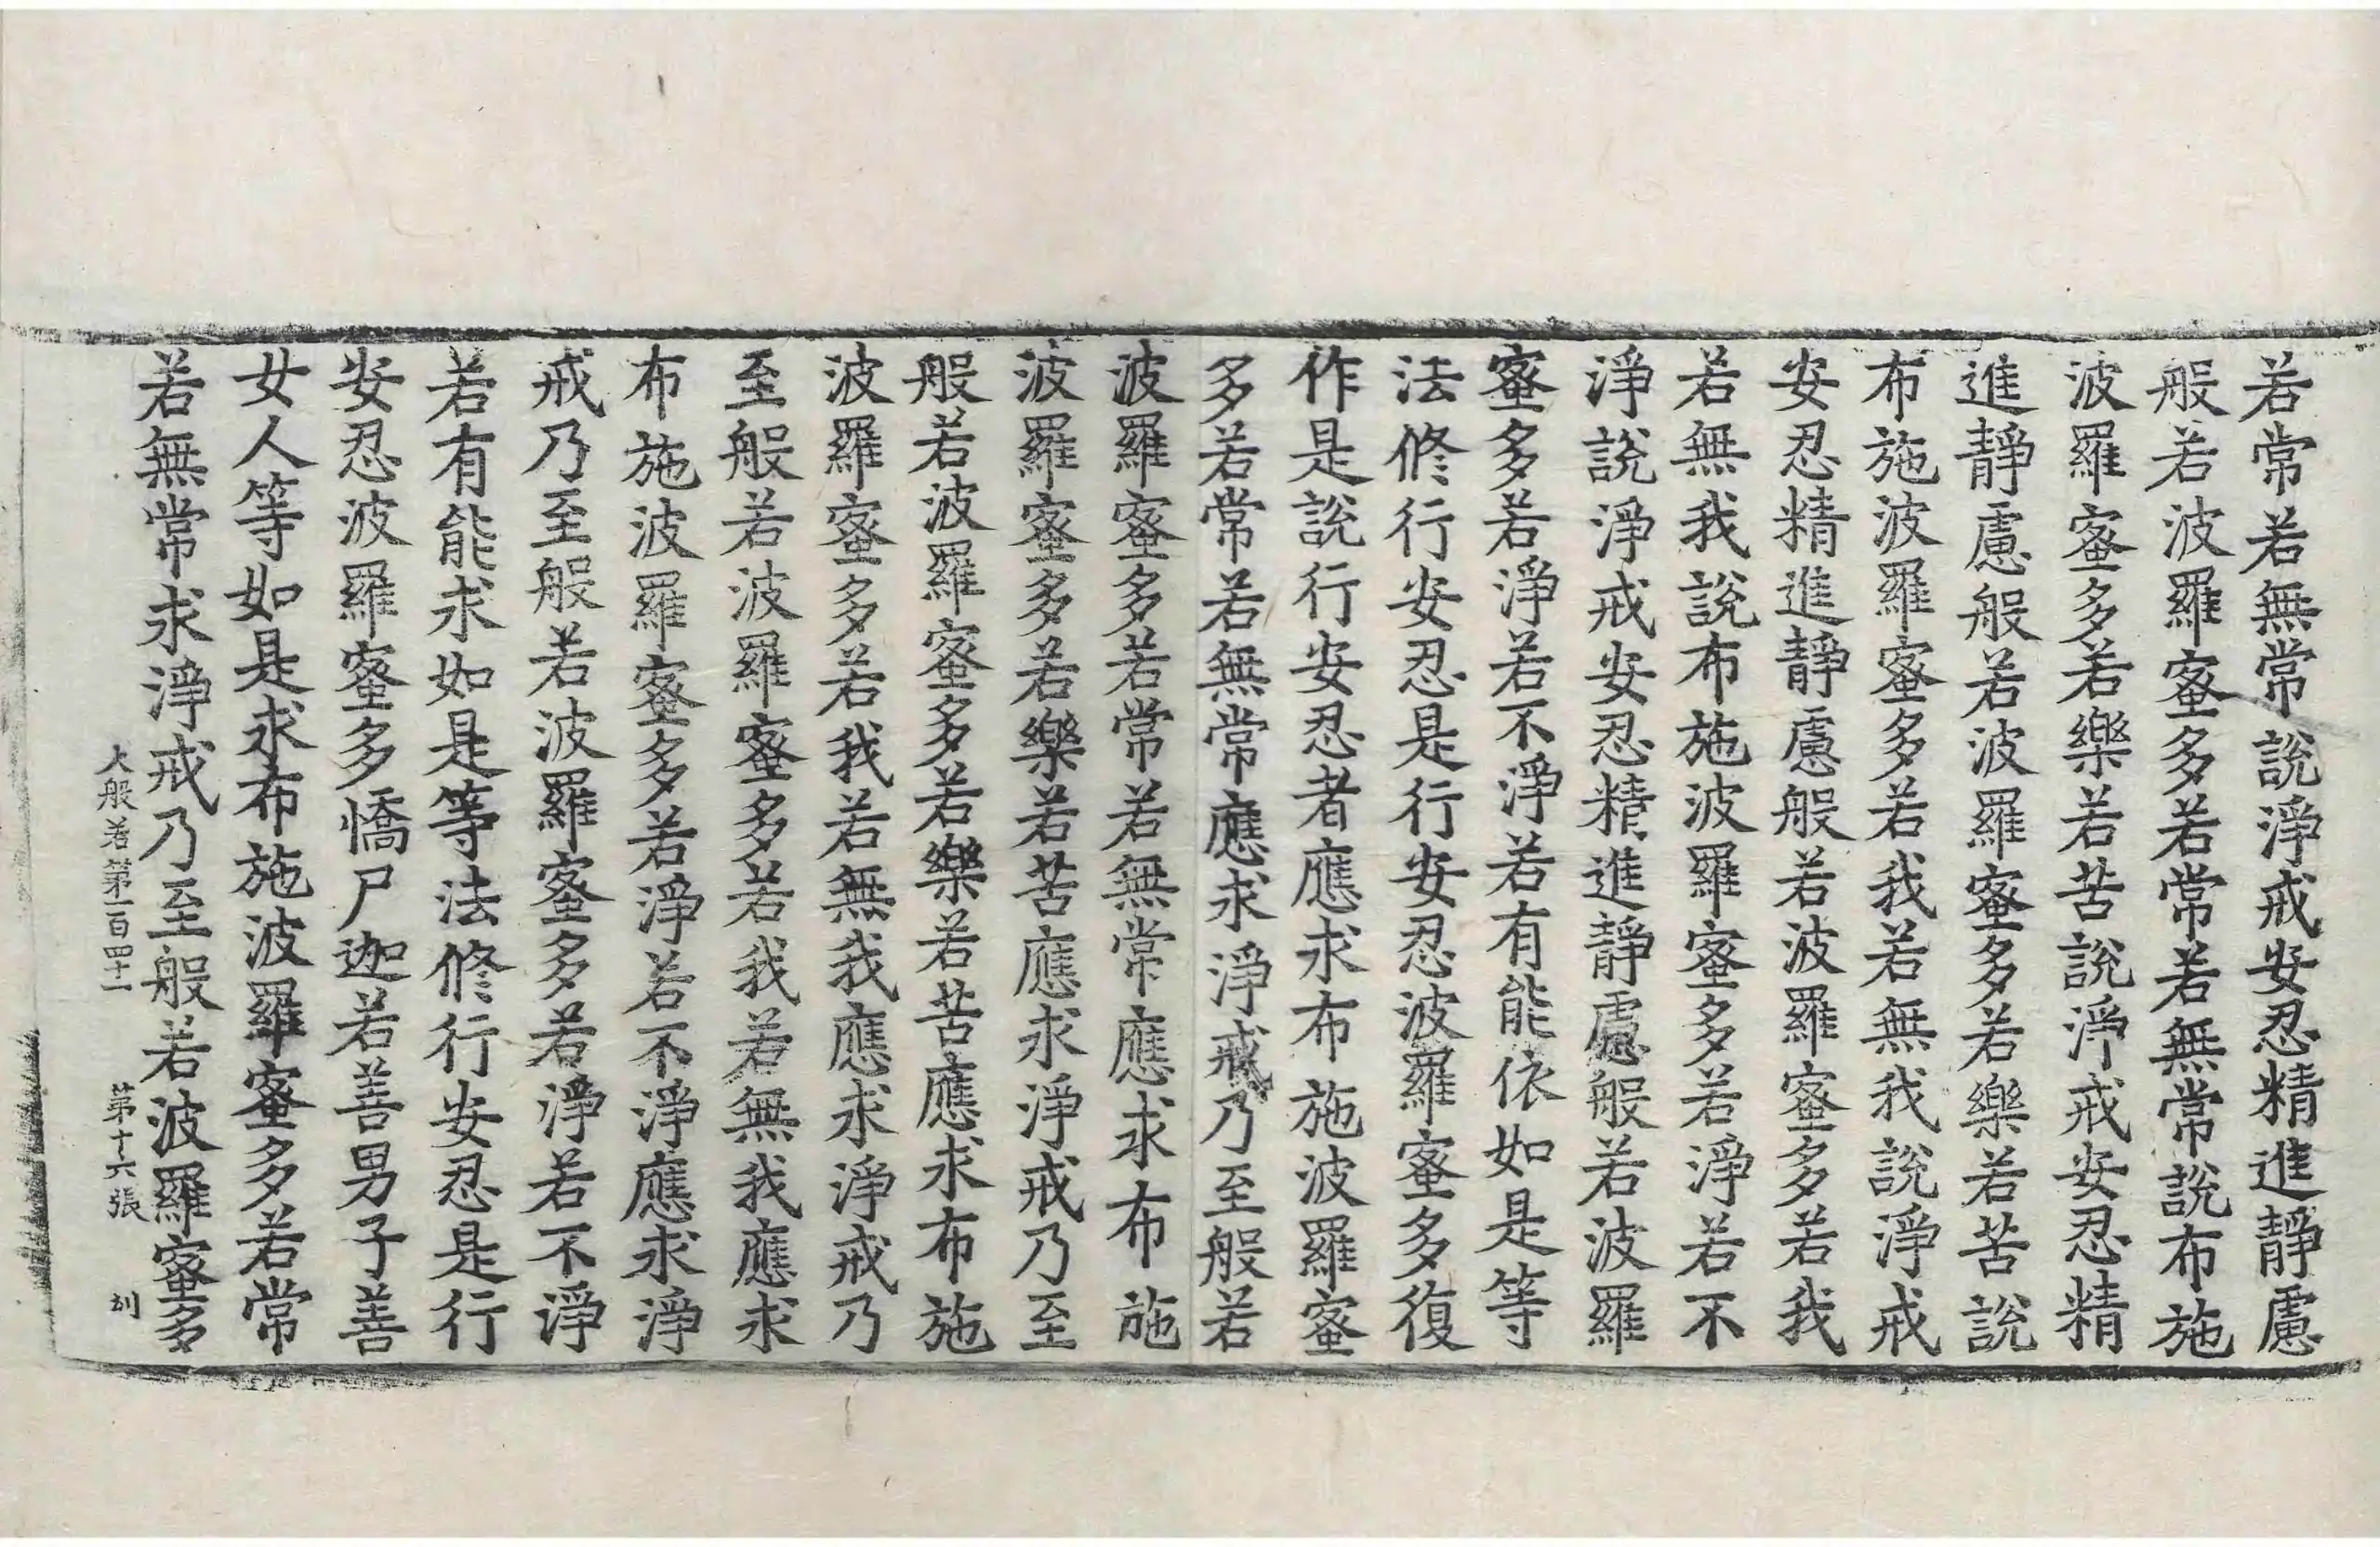 若常若無常說淨戒安忍精進靜慮
般若波羅蜜多若常若無常說布施
波羅蜜多若樂若苦說淨戒安忍精
進靜慮般若波羅蜜多若樂若苦說
布施波羅蜜多若我若無我說淨戒
安忍精進靜慮般若波羅蜜多若我
若無我說布施波羅蜜多若淨若不
淨說淨戒安忍精進靜慮般若波羅
蜜多若淨若不淨若有能依如是等
法修行安忍是行安忍波羅蜜多復
作是說行安忍者應求布施波羅蜜
多若常若無常應求淨戒乃至般若
波羅蜜多若常若無常應求布施
波羅蜜多若樂若苦應求淨戒乃至
般若波羅蜜多若樂若苦應求布施
波羅蜜多若我若無我應求淨戒乃
至般若波羅蜜多若我若無我應求
布施波羅蜜多若淨若不淨應求淨
戒乃至般若波羅蜜多若淨若不淨
若有能求如是等法修行安忍是行
安忍波羅蜜多憍尸迦若善男子善
女人等如是求布施波羅蜜多若常
若無常求淨戒乃至般若波羅蜜多
大般若第一百四十一 第十六張